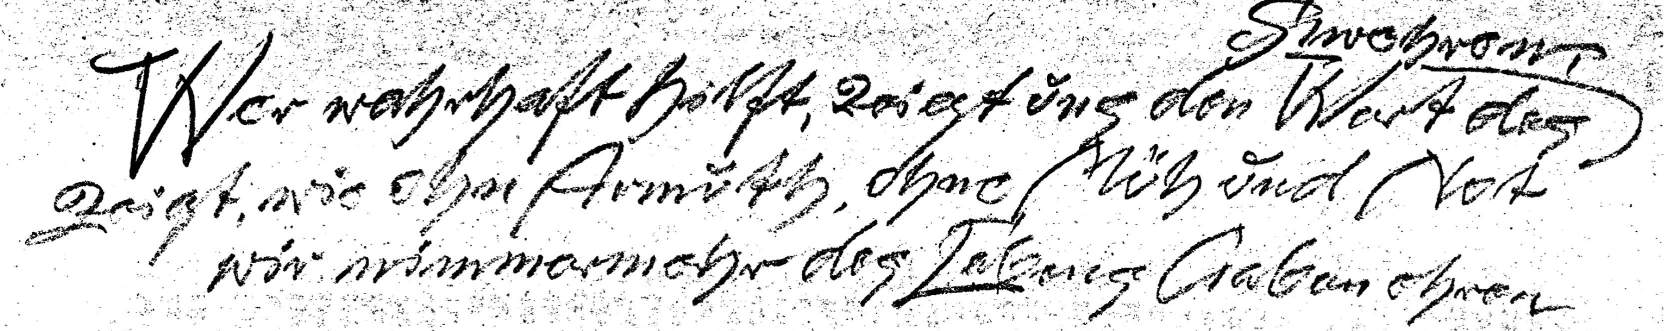 Wer wahrhaft hilft, zeigt uns den Wert des
zeigt, wie ohn Armuth, ohne Müh und Not
wir nimmermehr des Lebens Gaben ehren